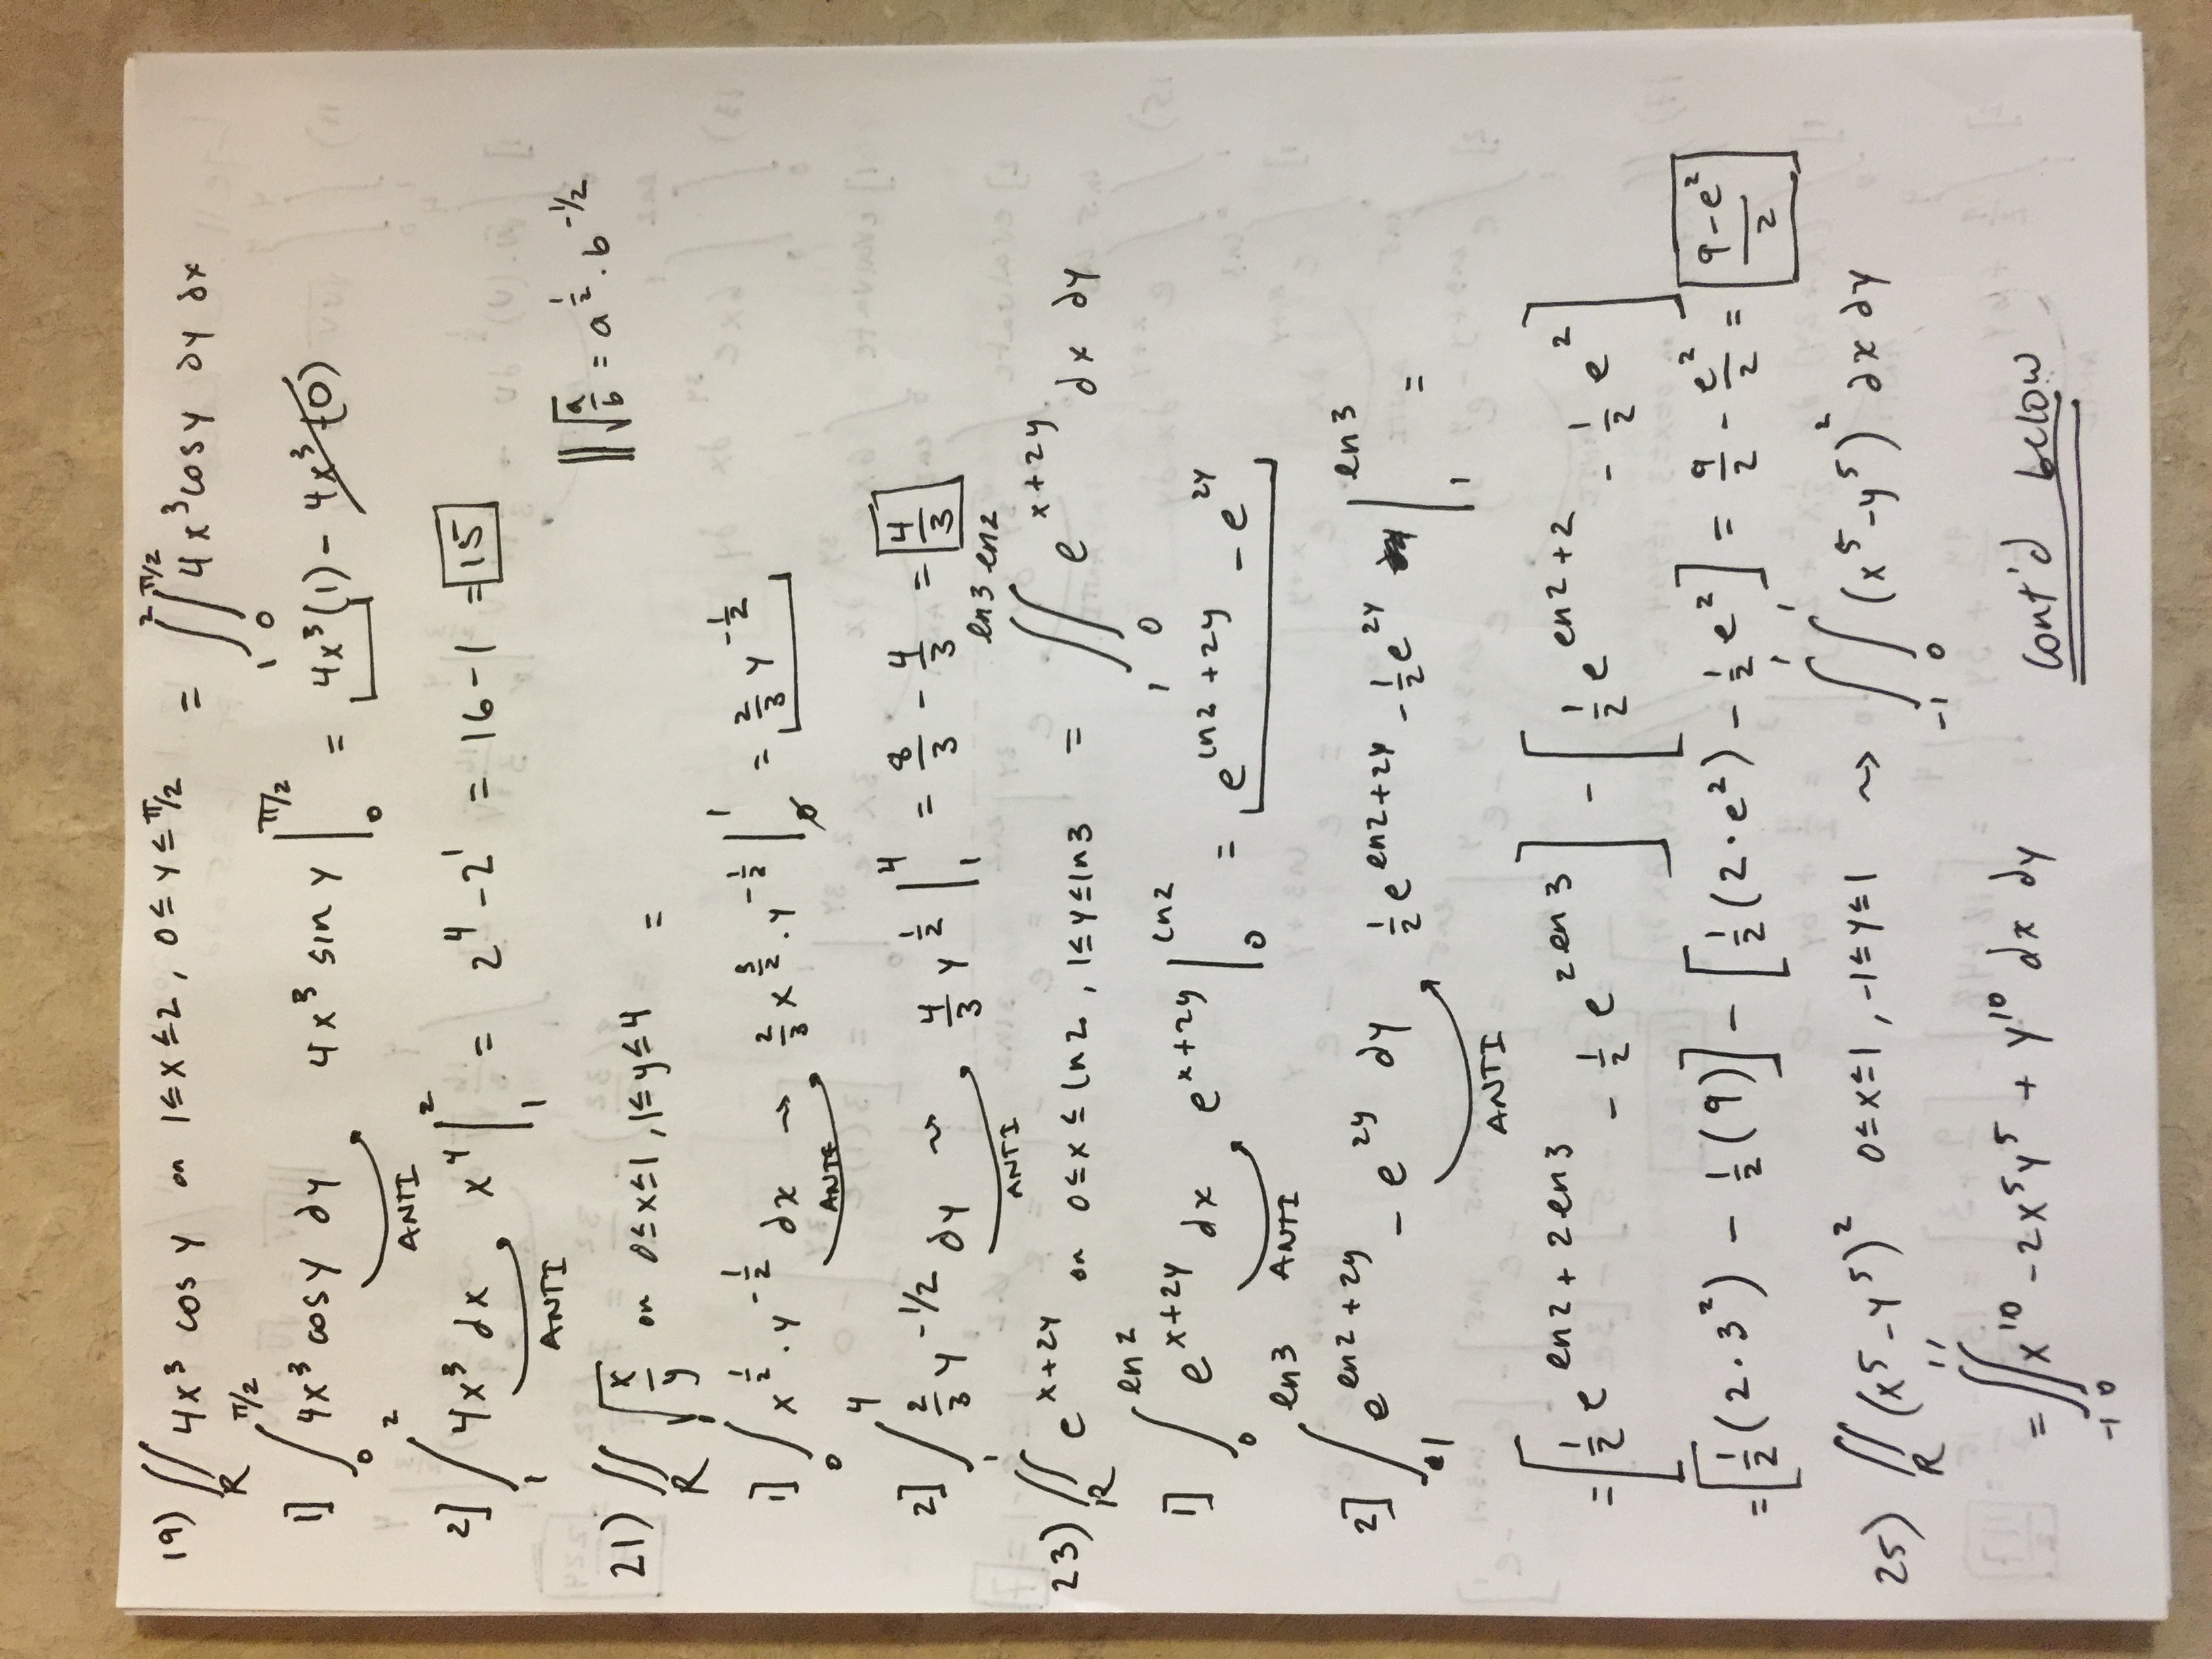 19) ∬_R 4x³ cos y on 1≤x≤2, 0≤y≤π/2 = ∫_1^2 ∫_0^{π/2} 4x³cosy dy dx
1] ∫_0^{π/2} 4x³ cosy dy 4x³ sin y |_0^{π/2} = 4x³(1) - 4x³(0)
ANTI
2] ∫_1^2 4x³ dx x⁴ |_1^2 = 2⁴ - 2¹ = 16 - 1 = 15
ANTI
|| √(a/b) = a^{1/2} · b^{-1/2}
21) ∬_R √(x/y) on 0≤x≤1, 1≤y≤4 =
1] ∫_0^1 x^{1/2} · y^{-1/2} dx → 2/3 x^{3/2} · y^{-1/2} |_0^1 = 2/3 y^{-1/2}
ANTI
2] ∫_1^4 2/3 y^{-1/2} dy → 4/3 y^{1/2} |_1^4 = 8/3 - 4/3 = 4/3
ANTI
23) ∬_R e^{x+2y} on 0≤x≤ln2, 1≤y≤ln3 = ∫_1^{ln3} ∫_0^{ln2} e^{x+2y} dx dy
1] ∫_0^{ln2} e^{x+2y} dx e^{x+2y} |_0^{ln2} = e^{ln2+2y} - e^{2y}
ANTI
2] ∫_1^{ln3} e^{ln2+2y} - e^{2y} dy 1/2 e^{ln2+2y} - 1/2 e^{2y} |_1^{ln3} =
ANTI
= [1/2 e^{ln2+2ln3} - 1/2 e^{2ln3}] - [1/2 e^{ln2+2} - 1/2 e²]
= [1/2 (2·3²) - 1/2 (9)] - [1/2 (2·e²) - 1/2 e²] = 9/2 - e²/2 = (9-e²)/2
25) ∬_R (x⁵-y⁵)² 0≤x≤1, -1≤y≤1 → ∫_{-1}^1 ∫_0^1 (x⁵-y⁵)² dx dy
= ∫_{-1}^1 ∫_0^1 x¹⁰ - 2x⁵y⁵ + y¹⁰ dx dy cont'd below